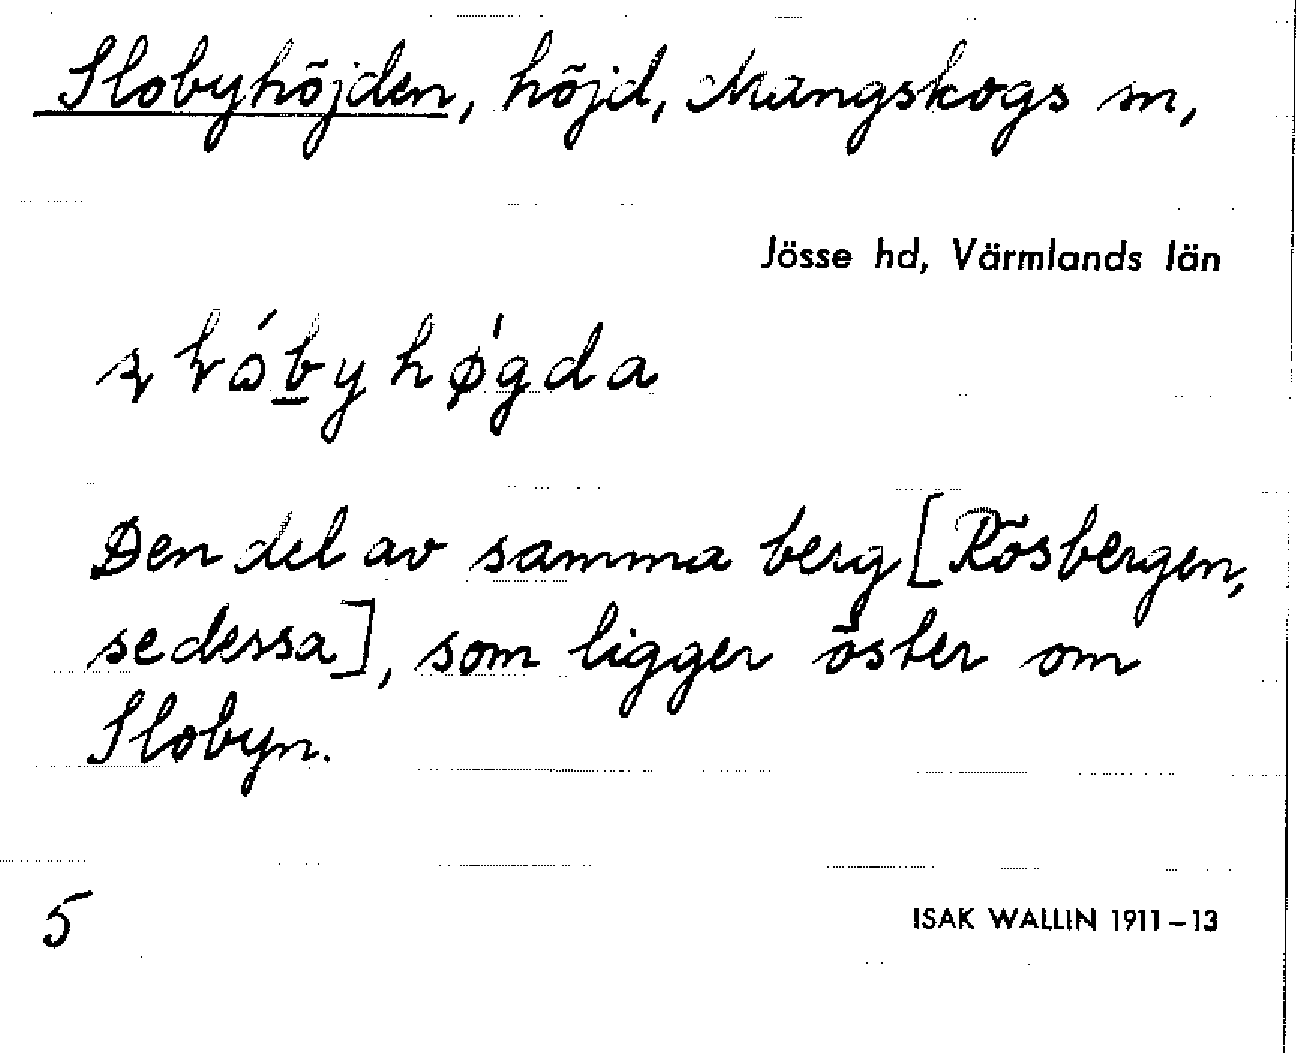 Slobyhöjden, höjd, Mangskogs sn,
Jösse hd, Värmlands län
Den del av samma berg [Rösbergen,
se dessa], som ligger öster om
Slobyn.
5
ISAK WALLIN 1911–13